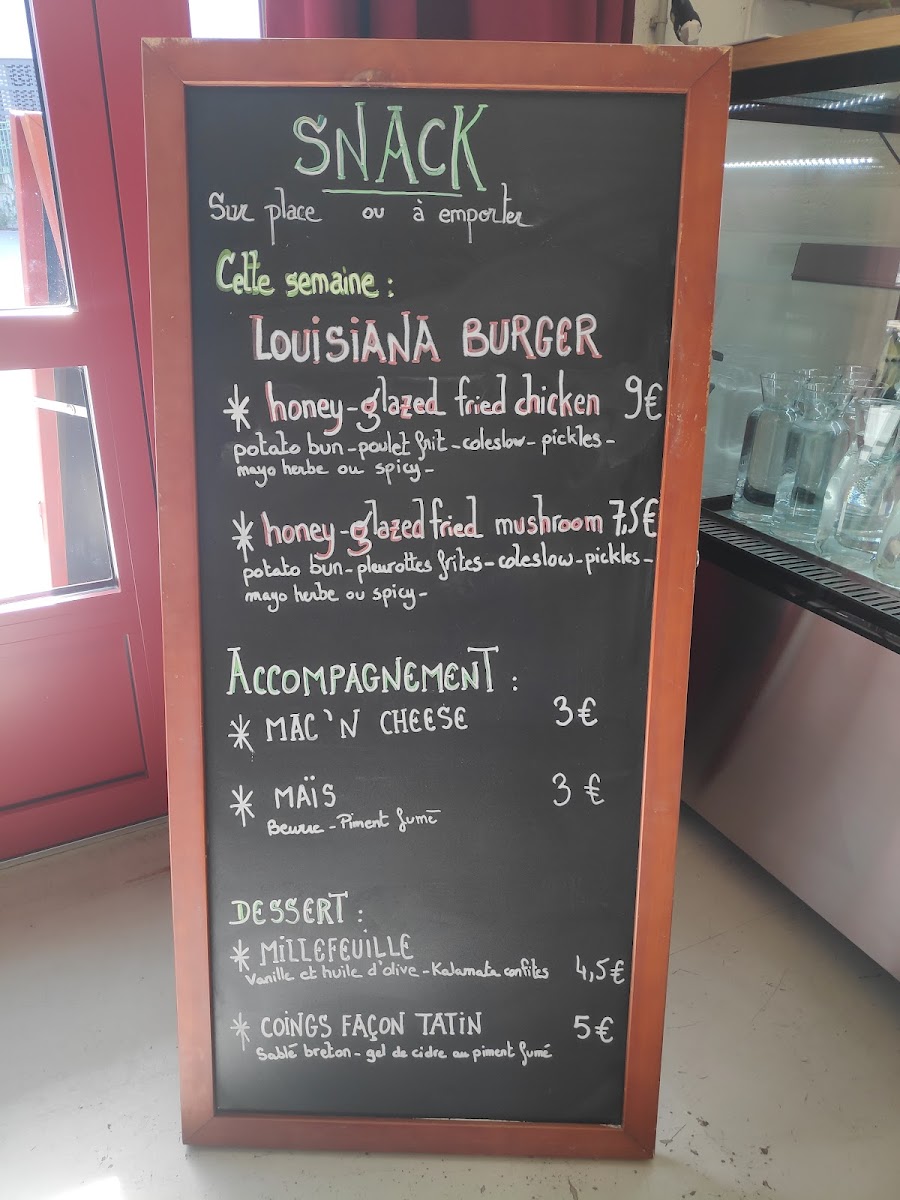 SNACK
Sur place ou à emporter
Cette semaine :
LOUISIANA BURGER
* honey-glazed fried chicken 9€
potato bun - poulet frit - coleslow - pickles -
mayo herbe ou spicy -
* honey-glazed fried mushroom 7,5€
potato bun - pleurottes frites - coleslow - pickles -
mayo herbe ou spicy -
ACCOMPAGNEMENT :
* MAC 'N CHEESE 3€
* MAÏS 3€
Beurre - Piment fumé
DESSERT :
* MILLEFEUILLE
Vanille et huile d'olive - Kalamata confites 4,5€
* COINGS FAÇON TATIN 5€
Sablé breton - gel de cidre au piment fumé